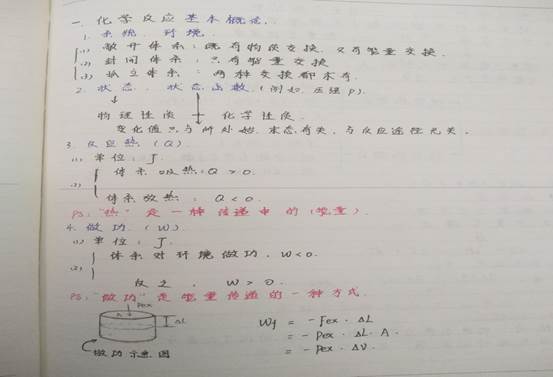 一. 化学反应基本概念.
1. 系统. 环境.
(1) 敞开体系: 既有物质交换. 又有能量交换.
(2) 封闭体系: 只有能量交换
(3) 孤立体系: 两种交换都未有.
2. 状态. 状态函数. (例如. 压强P).
物理性质 化学性质.
变化值只与所处始. 末态有关, 与反应途径无关.
3. 反应热 (Q)
(1) 单位: J.
(2) 体系吸热: Q > 0.
体系放热: Q < 0.
PS: "热" 是一种传递中的(能量).
4. 做功. (W).
(1) 单位: J.
(2) 体系对环境做功, W<0.
反之, W > 0.
PS: "做功" 是能量传递的一种方式.
Pex
A
ΔL
做功示意图
Wf = -Fex · ΔL
= -Pex · ΔL · A.
= -Pex · ΔV.